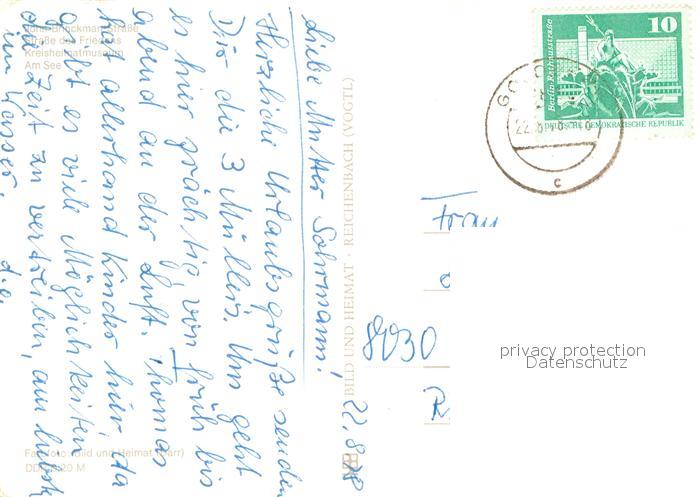 John-Brinckman-Straße
Straße des Friedens
Kreisheimatmuseum
Am See
Liebe Mutter Sohrmann! 22.8.78
Herzliche Urlaubsgrüße senden
Dir die 3 Müllers. Uns geht
es hier prächtig, von früh bis
abend an der Luft. Thomas
hat allerhand Kinder hier, da
gibt es viele Möglichkeiten
die Zeit zu vertreiben, am liebsten
im Wasser, die
Farbfoto: Bild und Heimat
DDR 0,20 M
BILD UND HEIMAT · REICHENBACH (VOGTL)
10
Berlin-Rathausstraße
DEUTSCHE DEMOKRATISCHE REPUBLIK
c
Frau
8030
privacy protection
Datenschutz